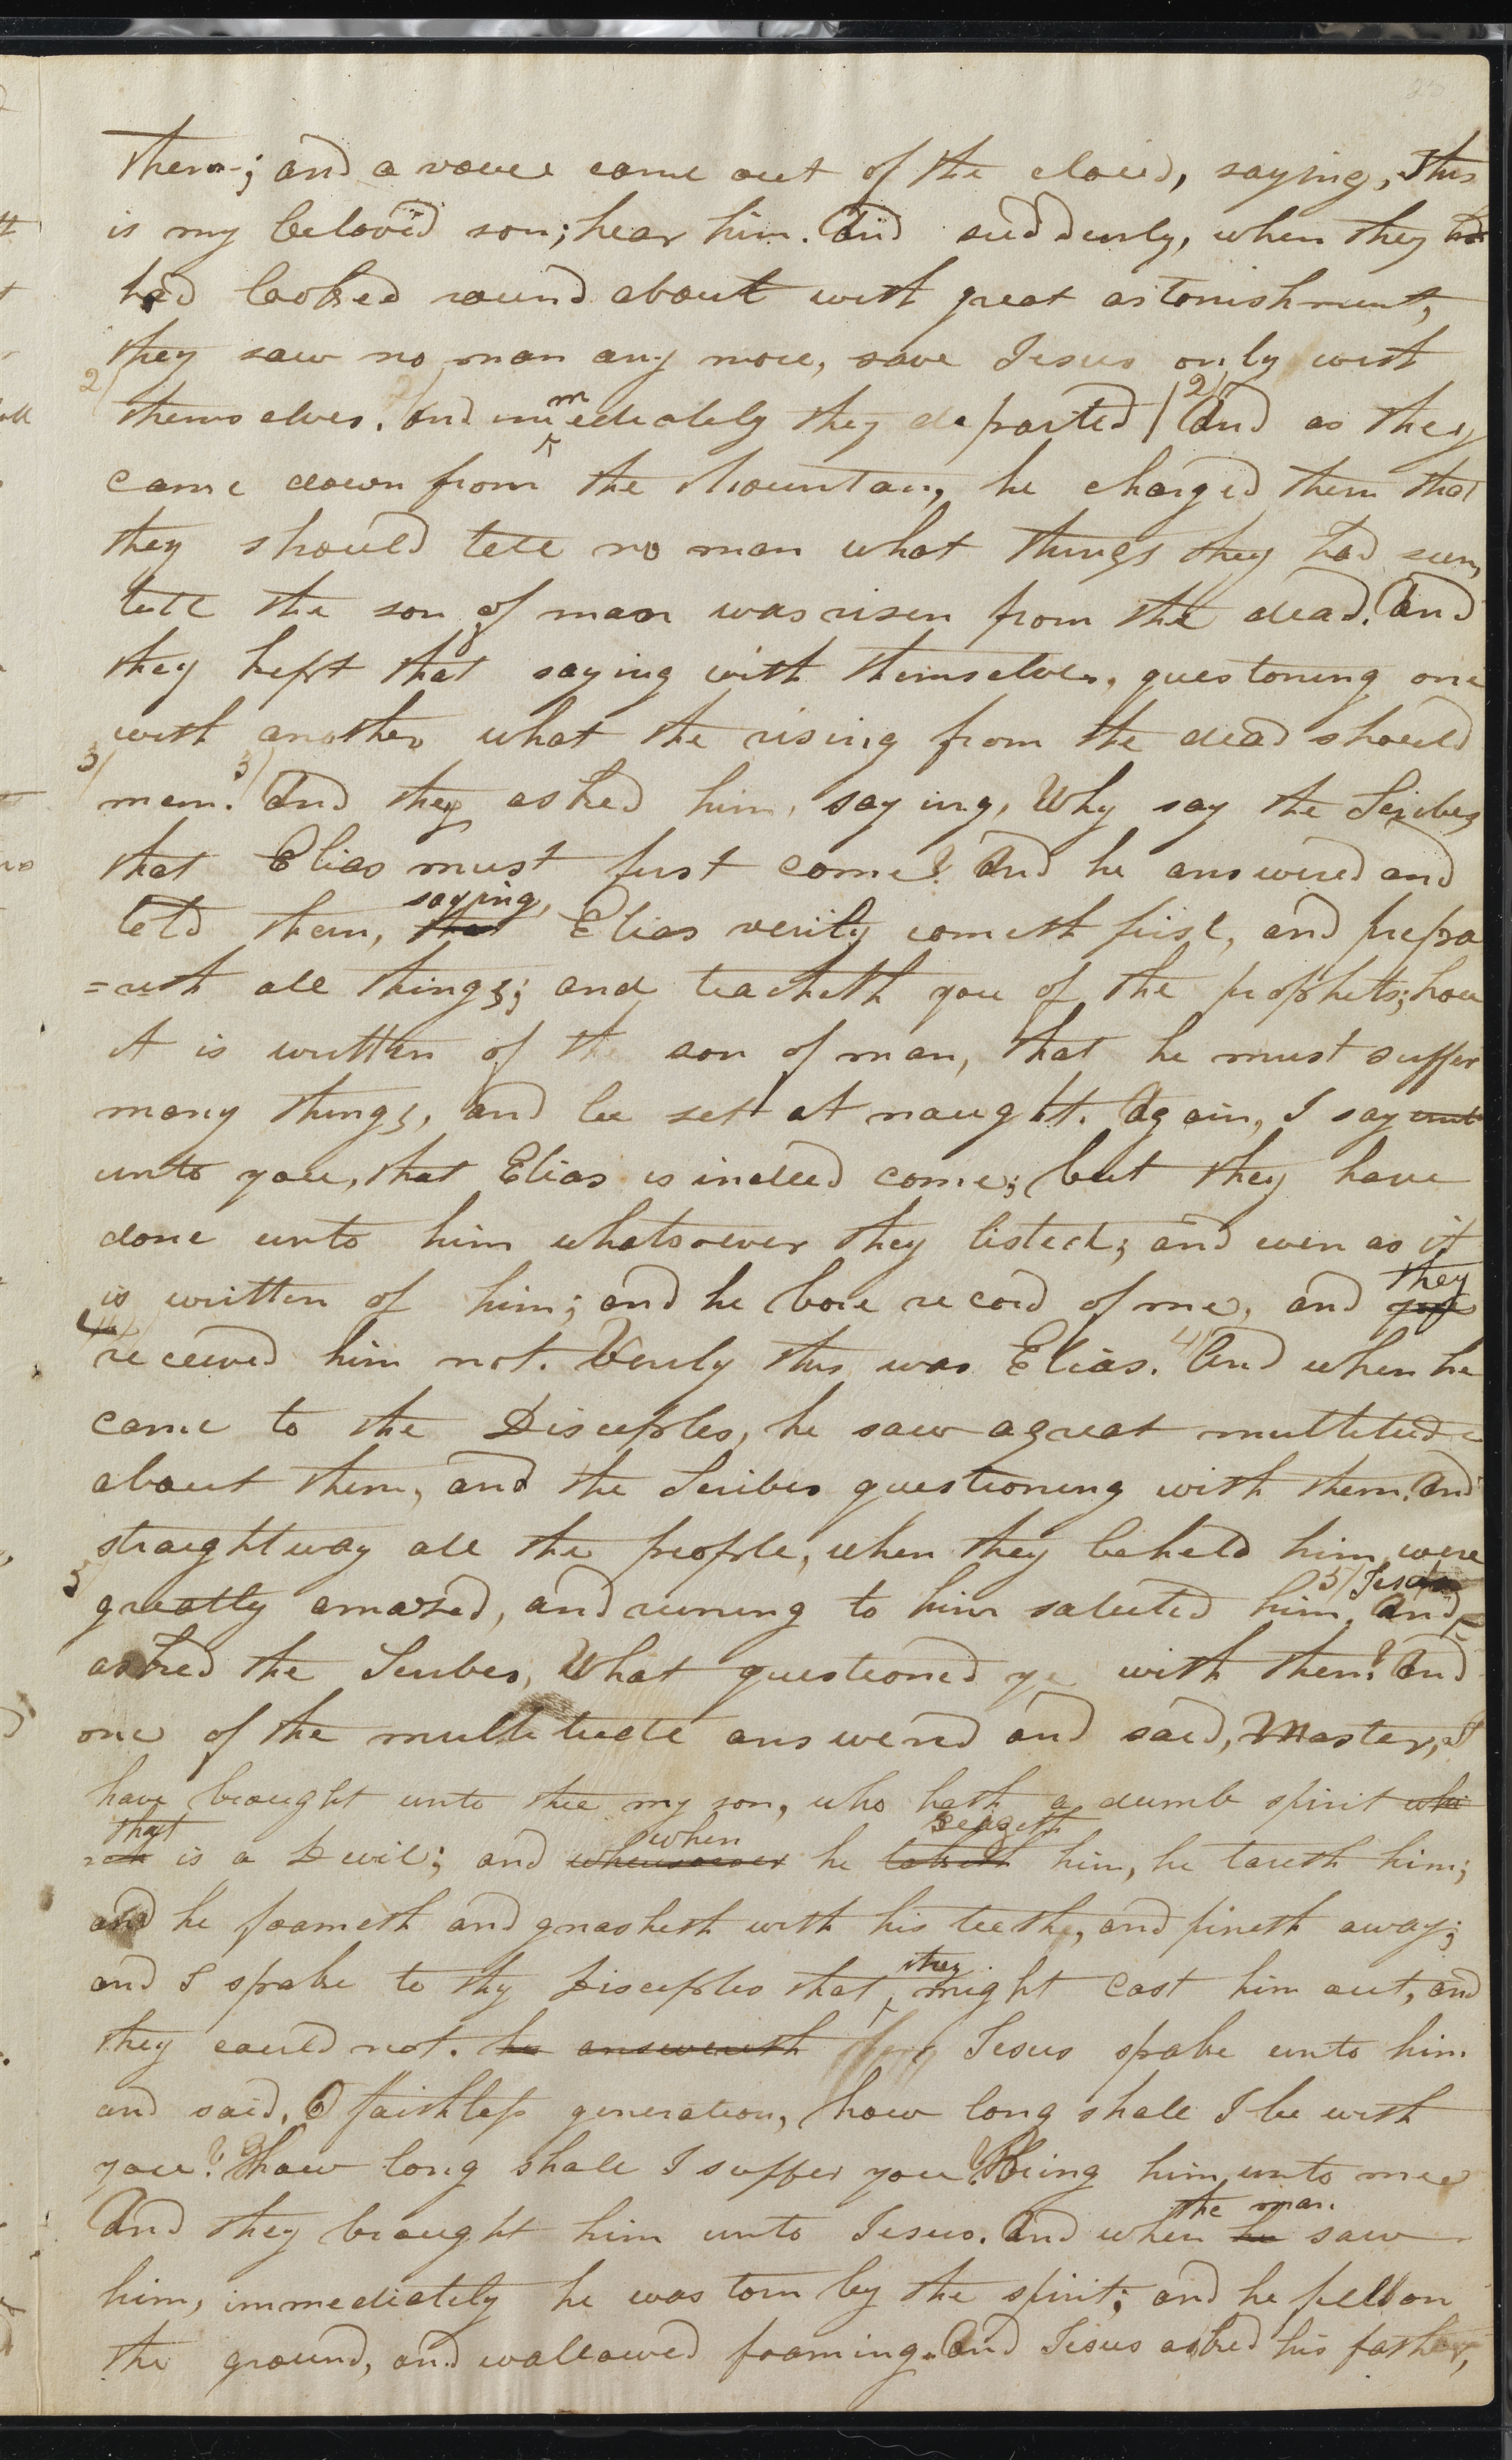 them; and a voice came out of the cloud, saying, This
is my beloved son; hear him. And suddenly, when they had
had looked round about with great astonishment,
they saw no man any more, save Jesus only with
2/ themselves. And immediately they departed / 2/ And as they
came down from the Mountain, he charged them that
they should tell no man what things they had seen,
till the son of man was risen from the dead. And
they kept that saying with themselves, questoning one
with another what the rising from the dead should
3/ mean. 3/ And they asked him, saying, Why say the Scribes
that Elias must first come? And he answered and
told them, that saying, Elias verily cometh first, and prepa
=reth all things; and teacheth you of the prophets; how
it is written of the son of man, that he must suffer
many things, and be set at naught. Again, I say unt
unto you, that Elias is indeed come; but they have
done unto him whatsoever they listed; and even as it
is written of him; and he bore record of me, and they
4/ received him not. Verily this was Elias. 4/ And when he
came to the Disciples, he saw a great multitude
about them, and the Scribes questioning with them. And
straightway all the people, when they beheld him, were
5/ greatly amazed, and runing to him saluted him. 5/ And Jesus
asked the Scribes, What questioned ye with them? And
one of the multitude answered and said, Master, I
have brought unto thee my son, who hath a dumb spirit whi
that is a Devil; and whensoever when he taketh seazeth him, he tareth him;
and he foameth and gnasheth with his teeth, and pineth away;
and I spake to thy Disciples that they might cast him out, and
they could not. he answereth Jesus spake unto him
and said, O faithless generation, how long shall I be with
you? How long shall I suffer you? Bring him unto me
And they brought him unto Jesus. And when he the man saw
him, immediately he was torn by the spirit; and he fell on
the ground, and wallowed foaming. And Jesus asked his father,